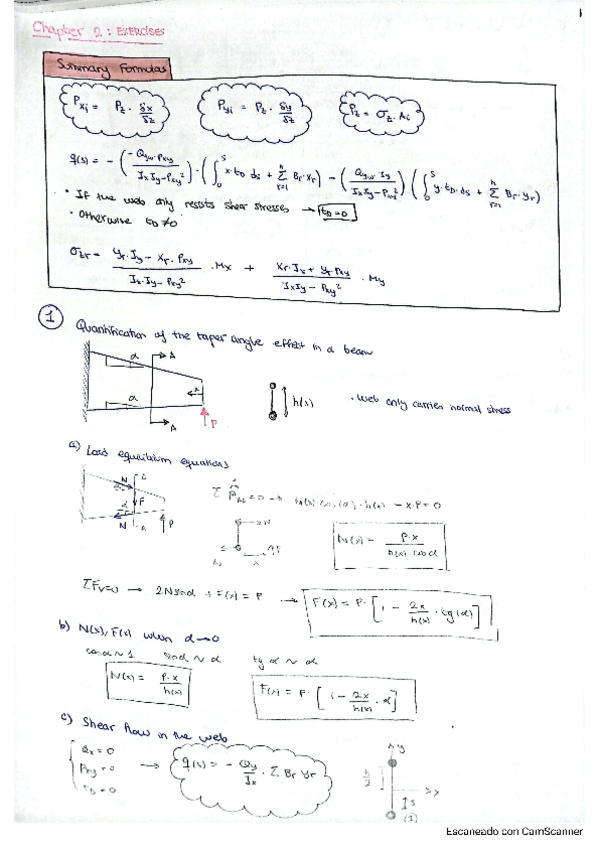 1
Chapter 2: EXERCISES
Summary Formulas
Pxi = Pz · δx/δz
Pyi = Pz · δy/δz
Pz = σz · Ai
q(s) = - (-Qyw·Pxy / IxIy-Pxy²) · (∫₀ˢ x·tD ds + Σ Br·xr) - (Qyw·Iy / IxIy-Pxy²) (∫₀ˢ y·tD·ds + Σ Br·yr)
· If the web only resists shear stresses → tD=0
· Otherwise tD≠0
σzr = yr·Iy - xr·Pxy / Ix·Iy-Pxy² · Mx + xr·Ix + yr·Pxy / IxIy-Pxy² · My
1 Quantification of the taper angle effect in a beam
α
A
x
h(x)
· Web only carries normal stress
α
A
P
a) Load equilibrium equations
N
F
N
P
N(x) = P·x / h(x) cosα
ΣFv=0 → 2Nsinα + F(x) = P → F(x) = P·[1 - 2x/h(x) · tg(α)]
b) N(x), F(x) when α→0
cosα ~ 1 sinα ~ α tg α ~ α
N(x) = P·x / h(x)
F(x) = P·[1 - 2x/h(x) · α]
c) Shear flow in the web
Qx = 0
Pxy = 0
tD = 0
→ q(s) = - Qy/Ix · Σ Br yr
h/2
y
x
s
(1)
Escaneado con CamScanner